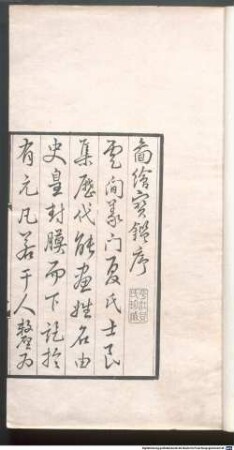 圖繪寶鑑序
雲間義門夏氏士良
集歷代能畫姓名由
史皇封膜而下訖於
有元凡若干人釐為